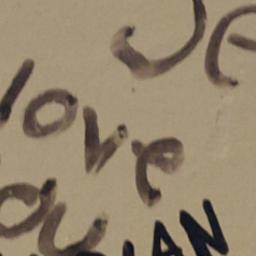 Je
love
ou
IAN